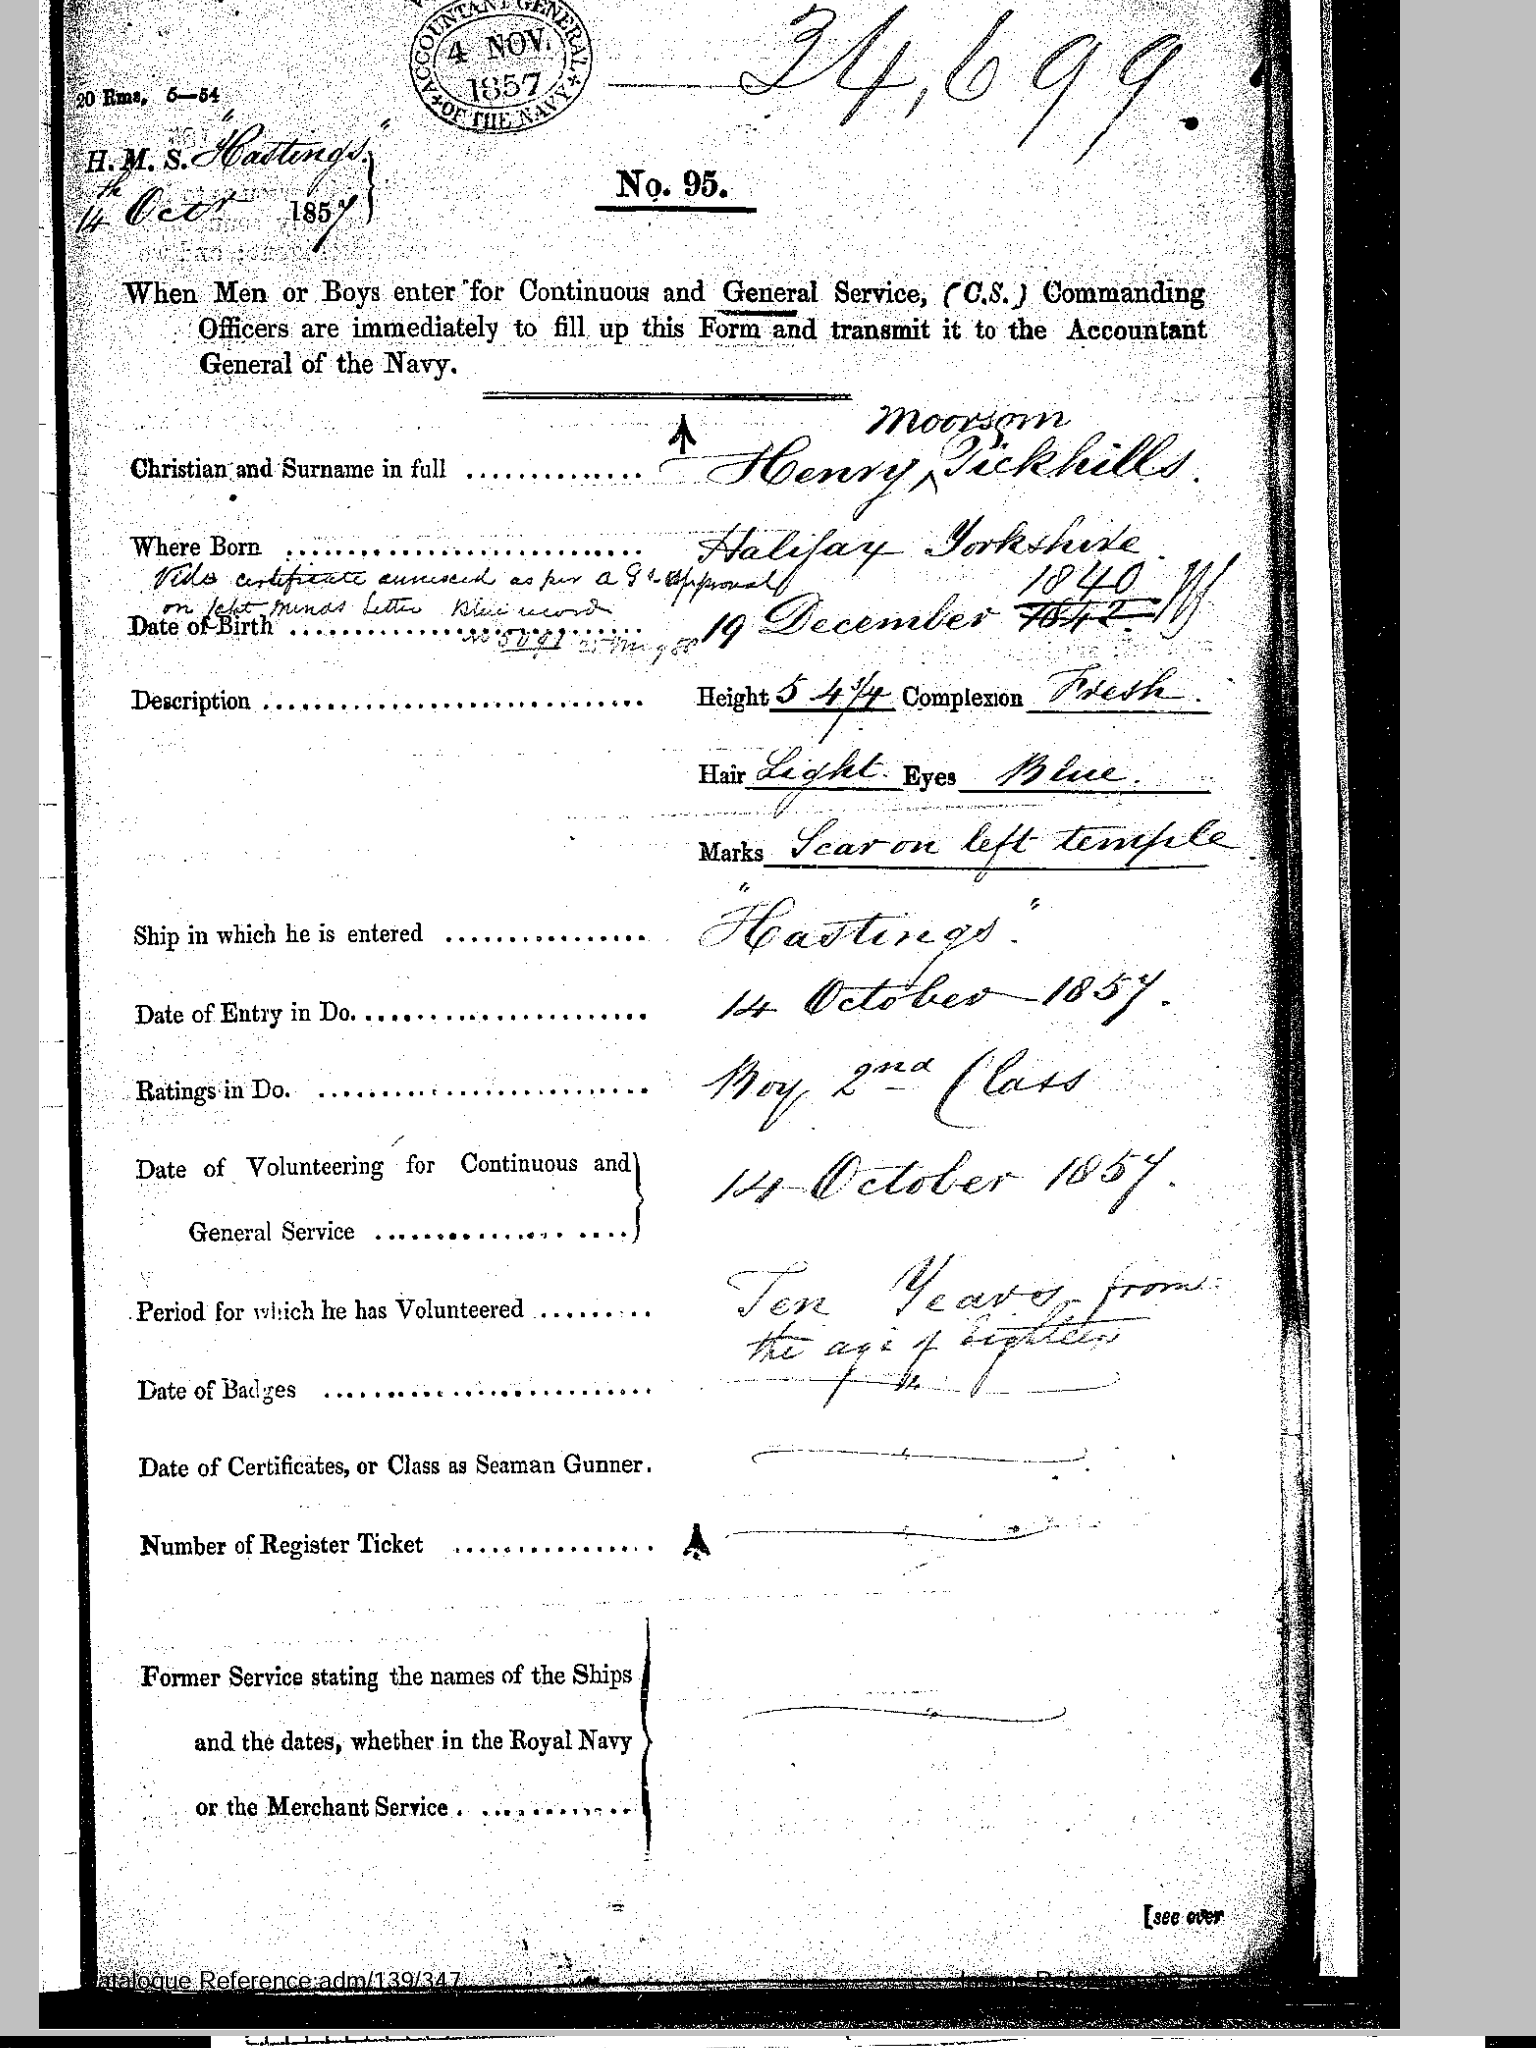 ACCOUNTANT GENERAL
4 NOV.
1857
OF THE NAVY
34,699.
20 Rms, 5—54
H. M. S. "Hastings."
14th Octr 1857
No. 95.
When Men or Boys enter for Continuous and General Service, (C.S.) Commanding
Officers are immediately to fill up this Form and transmit it to the Accountant
General of the Navy.
Moorsom
Christian and Surname in full .............. Henry ^ Tickhills.
Where Born ............................ Halifax Yorkshire.
Vide certificate annexed as per A Gs approval
1840
on Minds Letter Blue record
Date of Birth ............................ 19 December 1842.
No 5091
Description ............................ Height 5 4 3/4 Complexion Fresh.
Hair Light. Eyes Blue.
Marks Scar on left temple
Ship in which he is entered ................ "Hastings".
Date of Entry in Do. ...................... 14 October 1857.
Ratings in Do. .......................... Boy 2nd Class
Date of Volunteering for Continuous and
General Service .................... 14 October 1857.
Period for which he has Volunteered ......... Ten Years from
the age of Eighteen
Date of Badges ..........................
Date of Certificates, or Class as Seaman Gunner.
Number of Register Ticket ................
Former Service stating the names of the Ships
and the dates, whether in the Royal Navy
or the Merchant Service . ............
[see over
atalogue Reference:adm/139/347